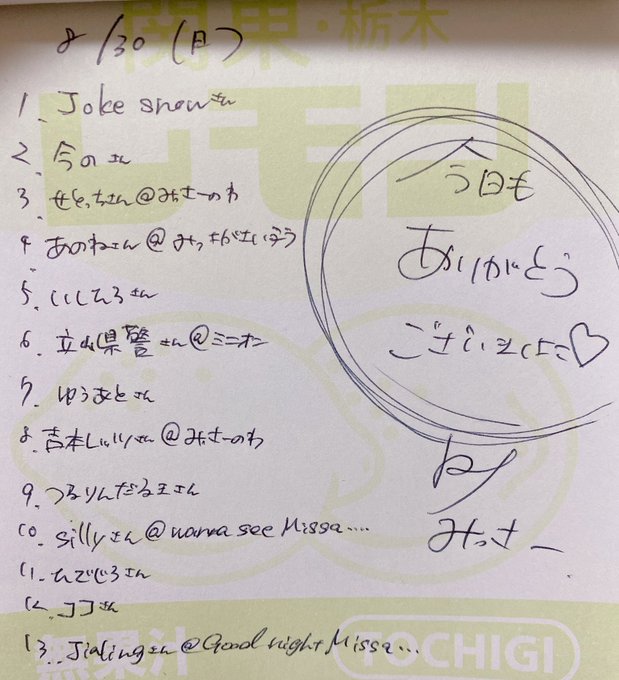 8/30(月)
関東・栃木
レモン
1. Joke snowさん
2. 今のさん
3. せとっちさん@みっさーのわ
4. あのねさん@みっさがさいぼう
5. いしひろさん
6. 立山県警さん@ミニオン
7. ゆうあとさん
8. 吉本しゅりさん@みっさーのわ
9. つるりんだる王さん
10. sillyさん@wanna see Missa....
11. ひでじろさん
12. ココさん
13. Jialingさん@Good night Missa...
今日も
ありがとう
ございました♡
by
みっさー
無果汁
TOCHIGI